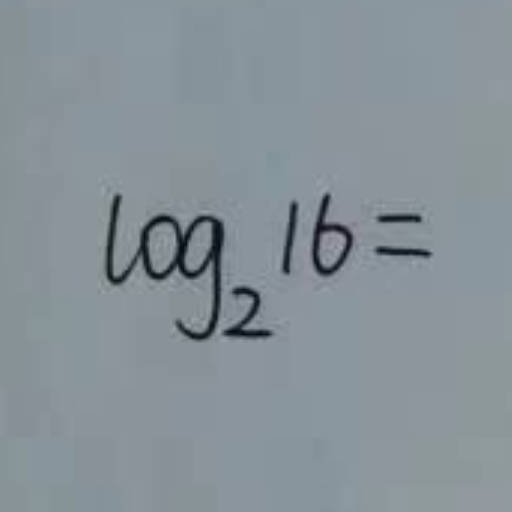 log₂ 16 =